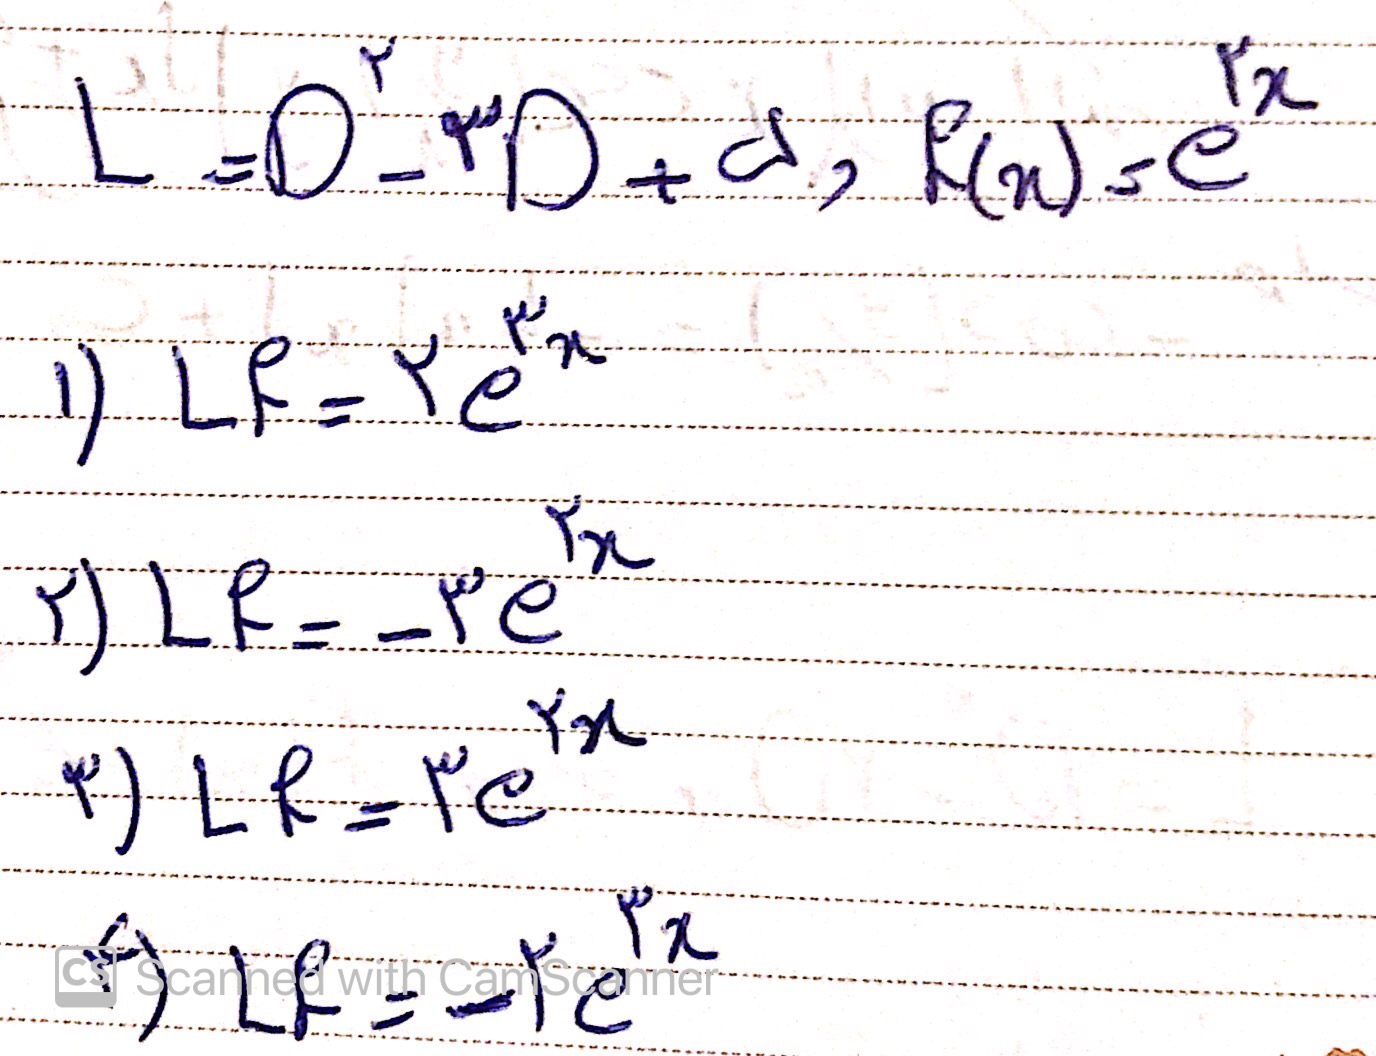 L = D^۲ - ۳D + ۵, f(x) = e^{۲x}
۱) Lf = ۲e^{۳x}
۲) Lf = -۳e^{۲x}
۳) Lf = ۳e^{۲x}
۴) Lf = -۲e^{۳x}
CS Scanned with CamScanner